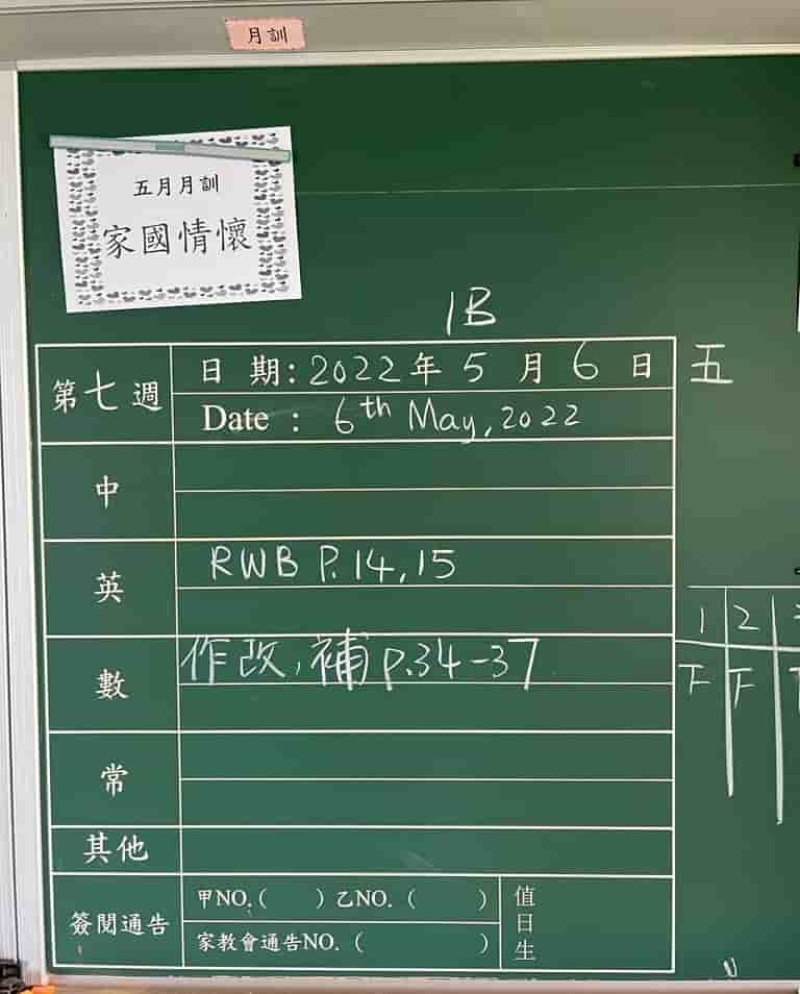 月訓
五月月訓
家國情懷
1B
第七週
日 期: 2022年 5 月 6 日 五
Date : 6th May, 2022
中
英
RWB P.14,15
數
作改, 補 p.34-37
常
其他
簽閱通告
甲NO.( ) 乙NO. ( )
家教會通告NO. ( )
值日生
1 2